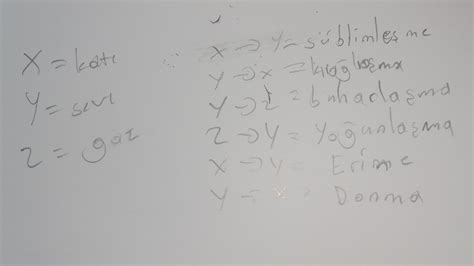 X = katı
Y = sıvı
Z = gaz
X → Y = süblimleşme
Y → X = kırağılaşma
Y → Z = buharlaşma
Z → Y = Yoğunlaşma
X → Y = Erime
Y → X = Donma